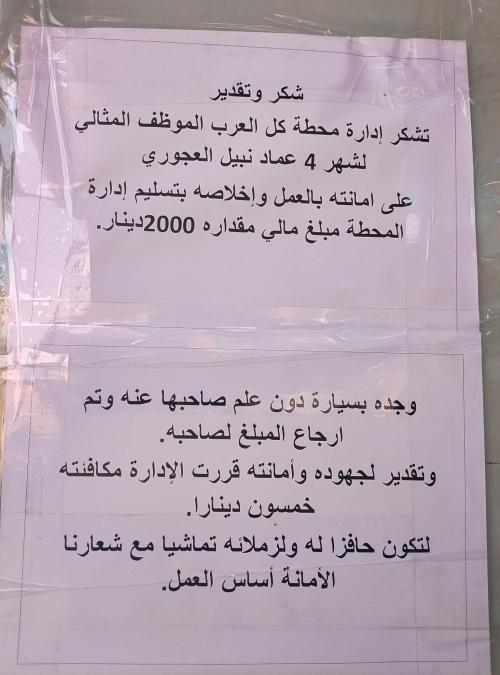 شكر وتقدير
تشكر إدارة محطة كل العرب الموظف المثالي
لشهر 4 عماد نبيل العجوري
على امانته بالعمل وإخلاصه بتسليم إدارة
المحطة مبلغ مالي مقداره 2000دينار.
وجده بسيارة دون علم صاحبها عنه وتم
ارجاع المبلغ لصاحبه.
وتقدير لجهوده وأمانته قررت الإدارة مكافئته
خمسون دينارا.
لتكون حافزا له ولزملائه تماشيا مع شعارنا
الأمانة أساس العمل.